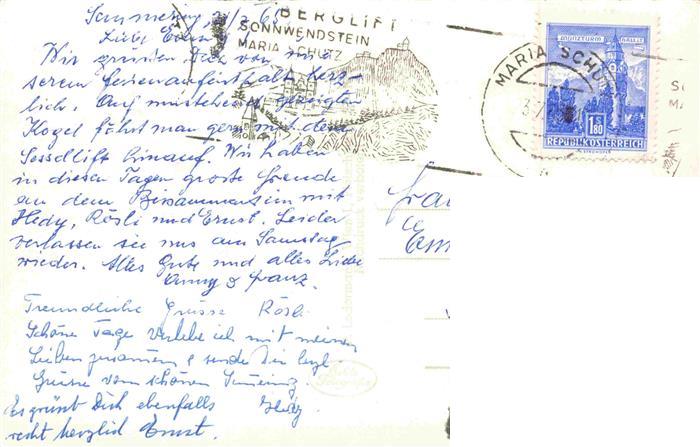 Semmering
Liebe
BERGLIFT
SONNWENDSTEIN
MARIA SCHUTZ
MÜNZTURM HALL i.T.
MARIA SCHU
1S80
REPUBLIK ÖSTERREICH
Wir grüssen Dich von un-
serem Ferienaufenthalt herz-
lich. Auf umstehend gezeigten
Kogel fährt man gern mit dem
Sessellift hinauf. Wir haben
in diesen Tagen grosse Freude
an dem Beisammensein mit
Hedy, Rösli und Ernst. Leider
verlassen sie uns am Samstag
wieder. Alles Gute und alles Liebe
Anny & Franz.
Freundliche Grüsse Rösli
Schöne Tage verlebe ich mit meinen
Lieben zusammen & sende Dir herzl.
Grüsse vom schönen Semmering.
Hedy
Es grüsst Dich ebenfalls
recht herzlich Ernst.